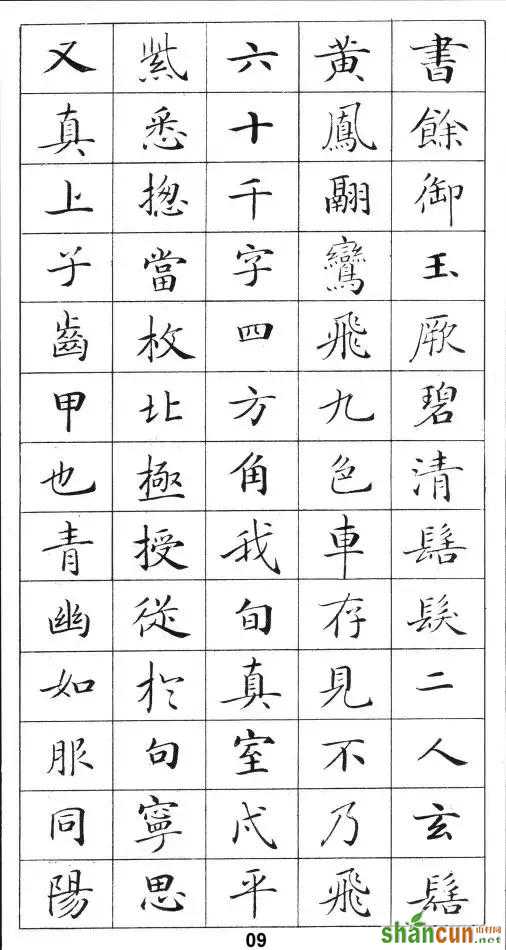 書餘御玉厥碧清髻髮二人玄髻
黃鳳翩鸞飛九色車存見不乃飛
六十千字四方角我旬真室戌平
紫悉揔當枚北極授從於句寧思
又真上子齒甲也青幽如服同陽
09
shancun 山村网
.net